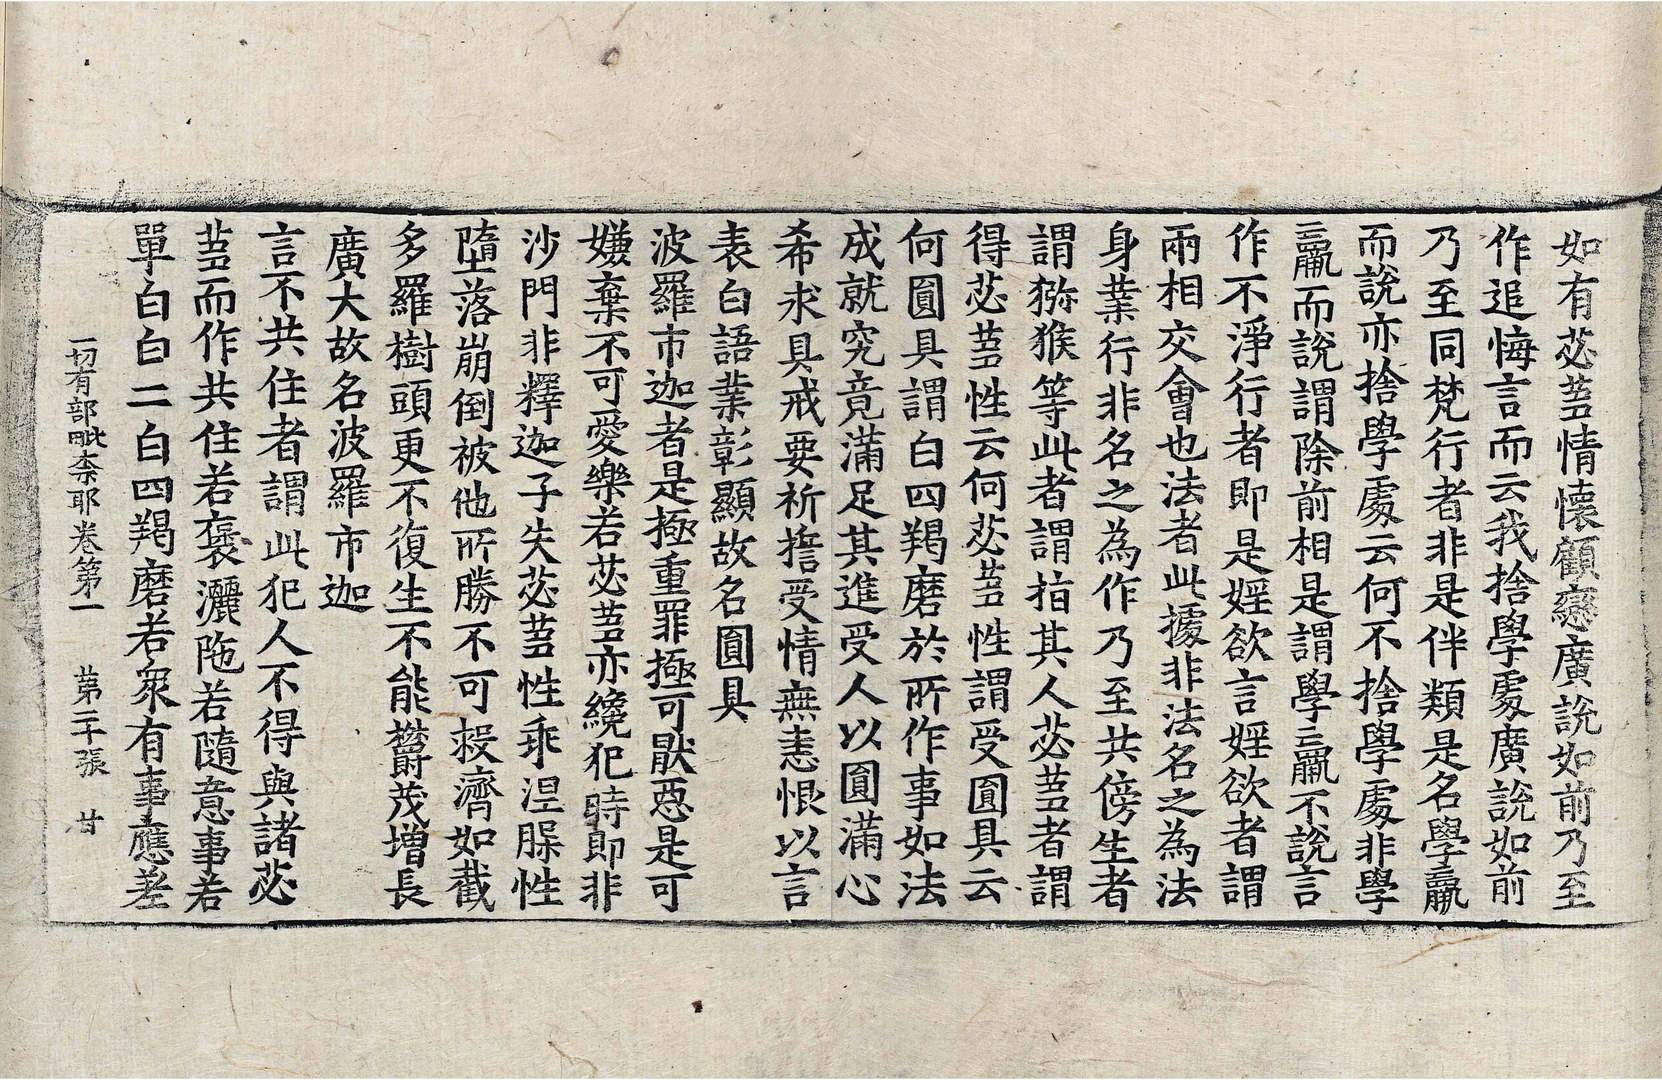 如有苾芻情懷顧戀廣說如前乃至
作追悔言而云我捨學處廣說如前
乃至同梵行者非是伴類是名學羸
而說亦捨學處云何不捨學處非學
羸而說謂除前相是謂學羸不說言
作不淨行者即是婬欲言婬欲者謂
兩相交會也法者此據非法名之為法
身業行非名之為作乃至共傍生者
謂獼猴等此者謂指其人苾芻者謂
得苾芻性云何苾芻性謂受圓具云
何圓具謂白四羯磨於所作事如法
成就究竟滿足其進受人以圓滿心
希求具戒要祈誓受情無恚恨以言
表白語業彰顯故名圓具
波羅市迦者是極重罪極可厭惡是可
嫌棄不可愛樂若苾芻亦纔犯時即非
沙門非釋迦子失苾芻性乖涅槃性
墮落崩倒被他所勝不可救濟如截
多羅樹頭更不復生不能欝茂增長
廣大故名波羅市迦
言不共住者謂此犯人不得與諸苾
芻而作共住若褒灑陁若隨意事若
單白白二白四羯磨若衆有事應差
一切有部毗柰耶卷第一　苐二十張　甘